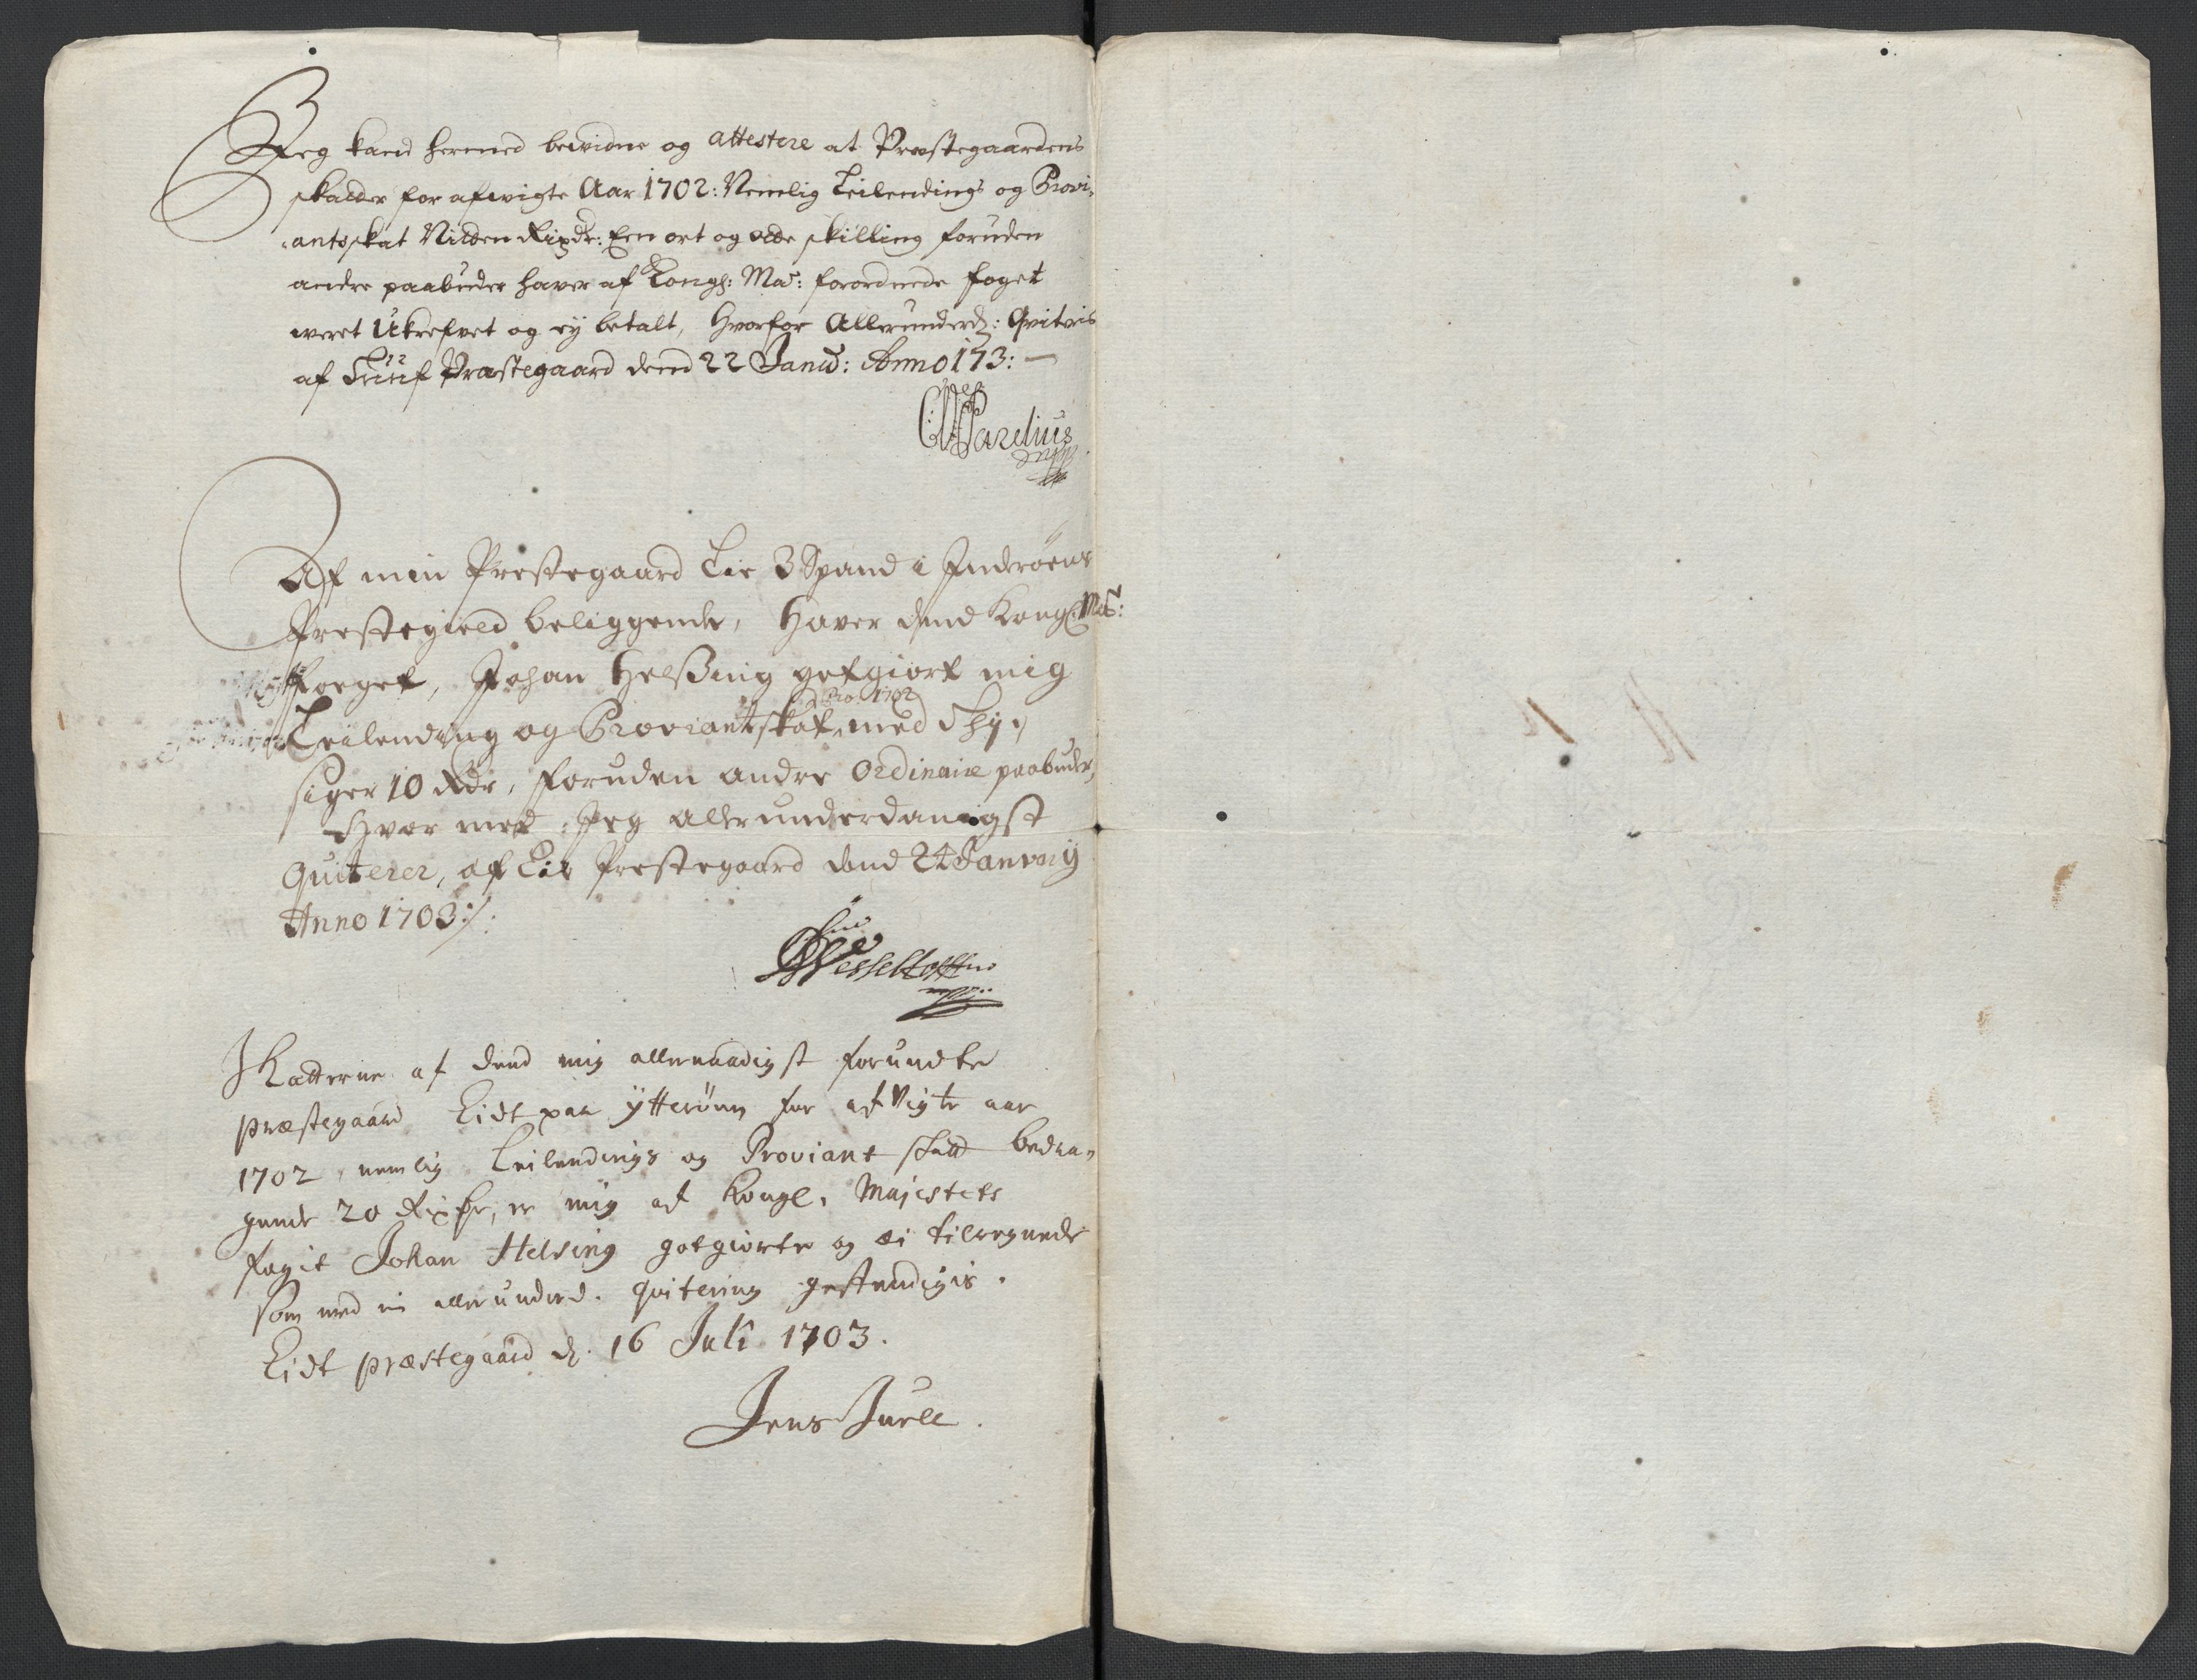 Jeg kand hermed bewidne og attestere at Præstegaardens
skatter for afwigte Aar 1702: Nemlig Leilendings og Provi-
antsskat Nitten Rixdr: Een ort og otte skilling foruden
andre paabuder haver af Kongl: Ma: forordnede foget
weret Ukrefvet og ej betalt, Hvorfor Allerunderd: Qviteris
af Præstegaard dend 22 Janu: Anno 173:
Parelius
Af min Prestegaard Lie 3 Spand i Inderöens
Prestegield beliggende, Haver dend Kongl. Ma:
Foeget, Johan Helsing gotgiort mig
Pro 1702
Leilending og Proviantskat, med Thj.,
siger 10 Rdr, foruden andre Ordinaire paabuder,
Hvor med Jeg allerunderdanigst
Quiterer, af Lie Prestegaard dend 24 Januarij
Anno 1703:/:
Wesseltofft
Skatterne af dend mig allernaadigst forundte
præstegaard Eidt paa ytteröen for afvigte aar
1702, nemlig Leilendings og Proviant skatt bedra-
gende 20 Rixdr, er mig af Kongl. Majestets
fogit Johan Helsing gotgiorte og ei tilregnede
som med en allerunderd. qvitering gestendigis.
Eidt præstegaard d. 16 Juli 1703.
Jens Juell.